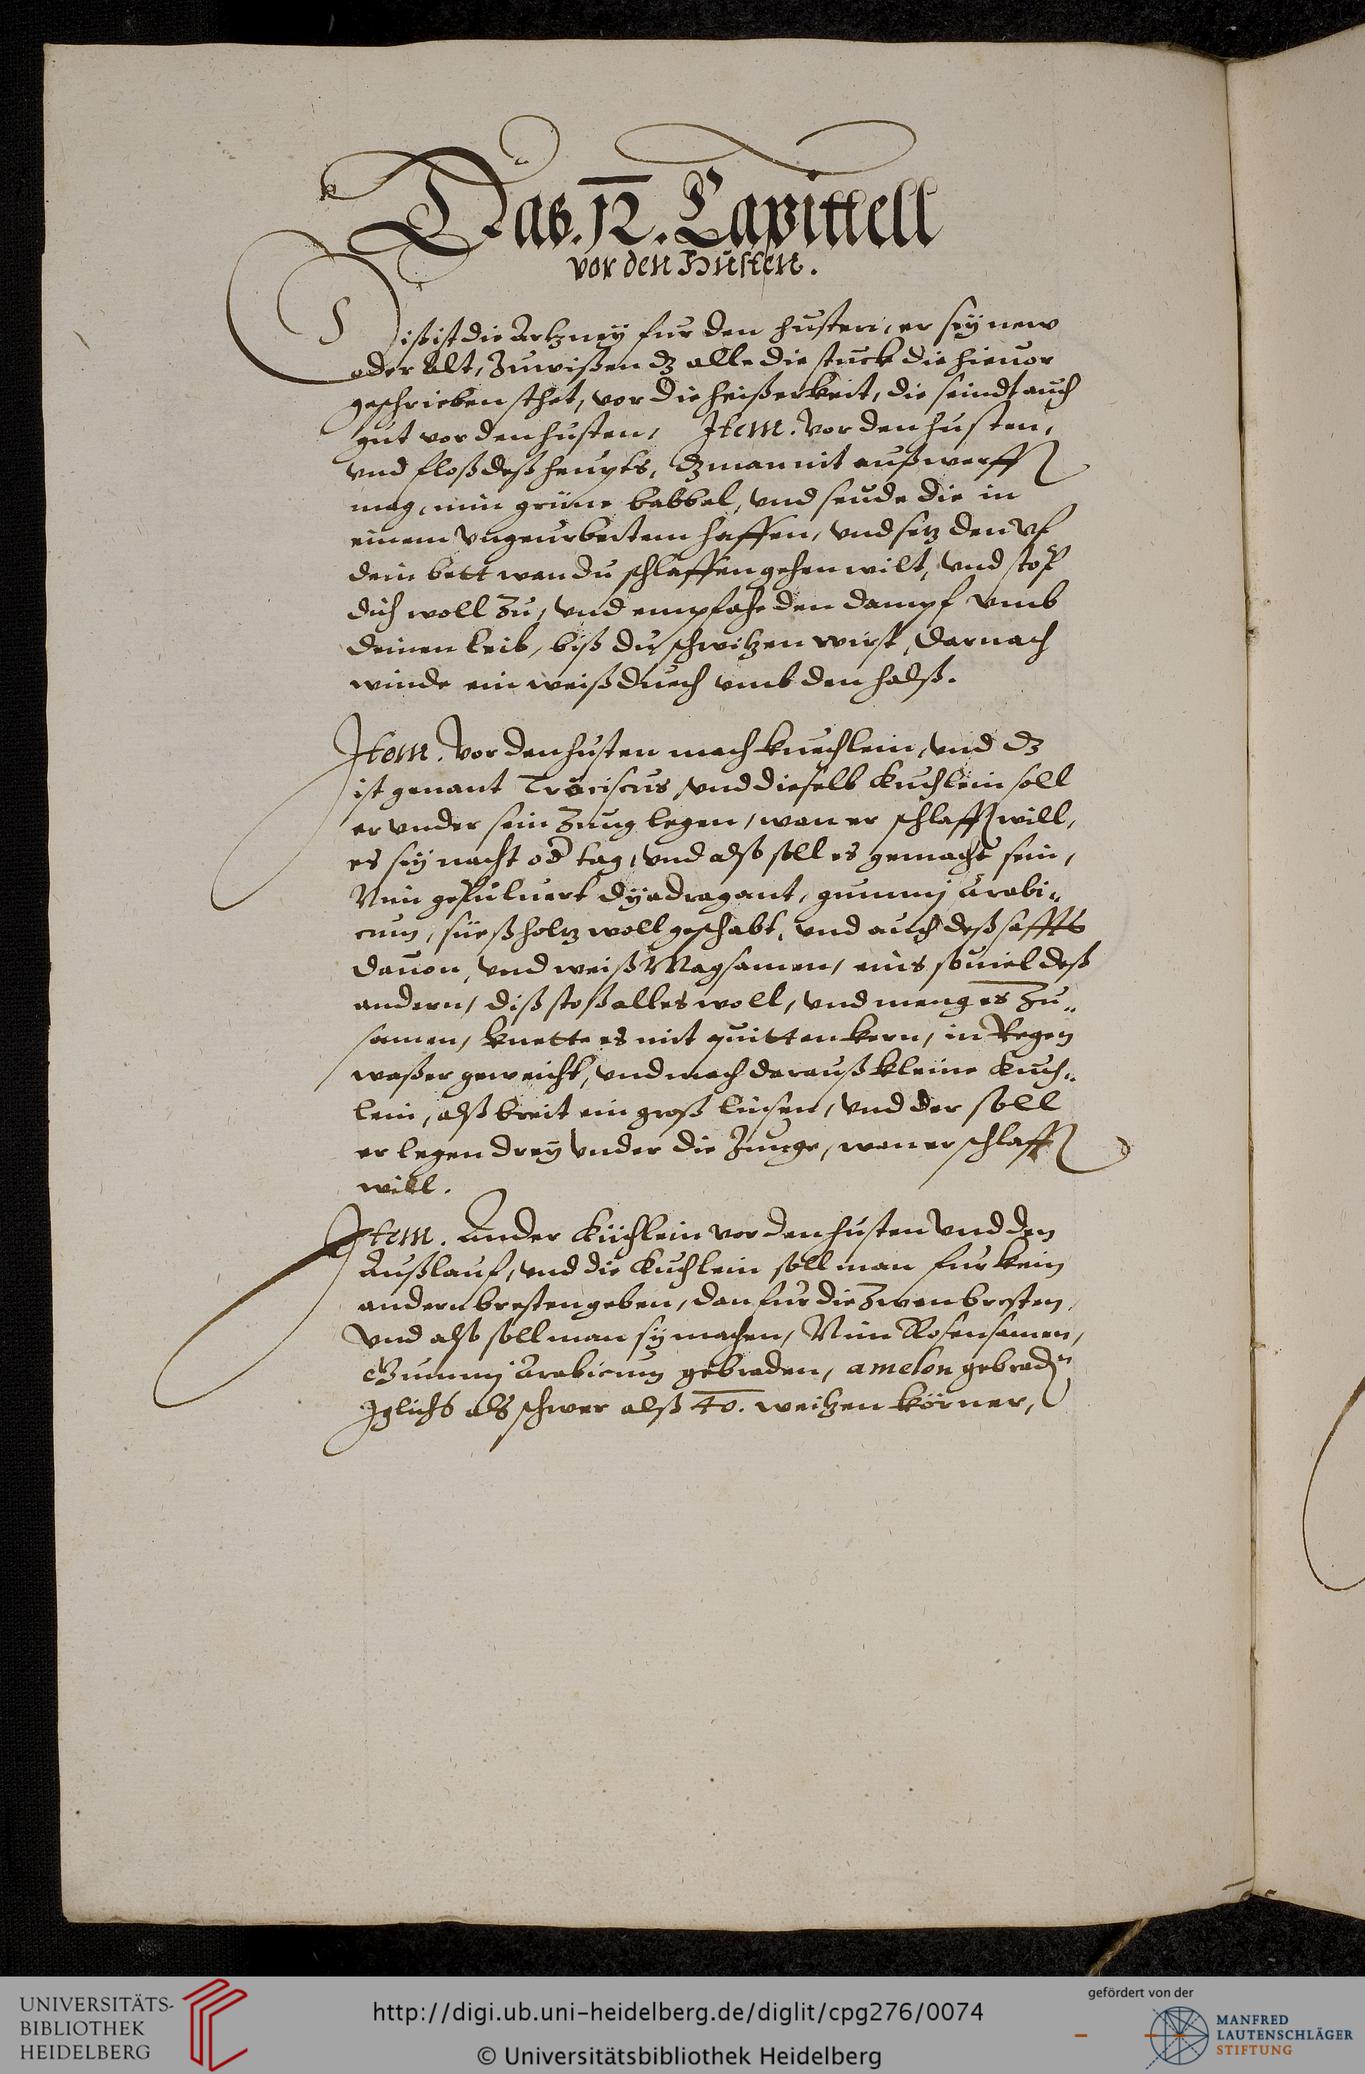 Das. 12. Capittell
vor den Husten.
Diß ist die Artzney fur den husten, er sey new
oder Alt, Zuwißen dz alle die stuck die hieuor
geschrieben sthet, vor die heißerkeit, die seindt auch
gut vor den husten, Item. Vor den husten,
vnd floß deß heupts, dz man nit außwerff
mag, nim grüne babbel, vnd seude die in
einem vngeurbeitem haffen, vnd setz den vf
dein bett wan du schlaffen gehen wilt, vnd stopf
dich woll zu, vnd empfahe den dampf vmb
deinen leib, biß du schwitzen wirst, darnach
winde ein weiß duech vmb den halß.
Item. Vor den husten mach kuechlein, vnd dz
ist genant Trociscus, vnd dieselb kuchlein soll
er vnder sein Zung legen, wan er schlaff will,
es sey nacht od tag, vnd also soll es gemacht sein,
Nim gepuluert dyadragant, gummj Arabi„
cum, süeßholtz woll geschabt, vnd auch deß saffts
dauon, vnd weiß Magsamen, eins souiel deß
andern, diß stoß alles woll, vnd meng es zu„
samen, knette es mit quitten kern, in Regen
waßer geweicht, vnd mach darauß kleine kuch„
lein, alß breit ein groß linsen, vnd der soll
er legen drey vnder die Zunge, wan er schlaff
will.
Item. Ander Küchlein vor den husten vnd den
Außlauf, vnd die kuchlein soll man fur kein
andern bresten geben, dan fur die Zwen bresten,
vnd also soll man sy machen, Nim Rosensamen,
Gummj Arabicum gebraden, amelon gebradn
Jglichs als schwer alß 40. weitzen körner,
UNIVERSITÄTS-
BIBLIOTHEK
HEIDELBERG
http://digi.ub.uni-heidelberg.de/diglit/cpg276/0074
© Universitätsbibliothek Heidelberg
gefördert von der
MANFRED
LAUTENSCHLÄGER
STIFTUNG